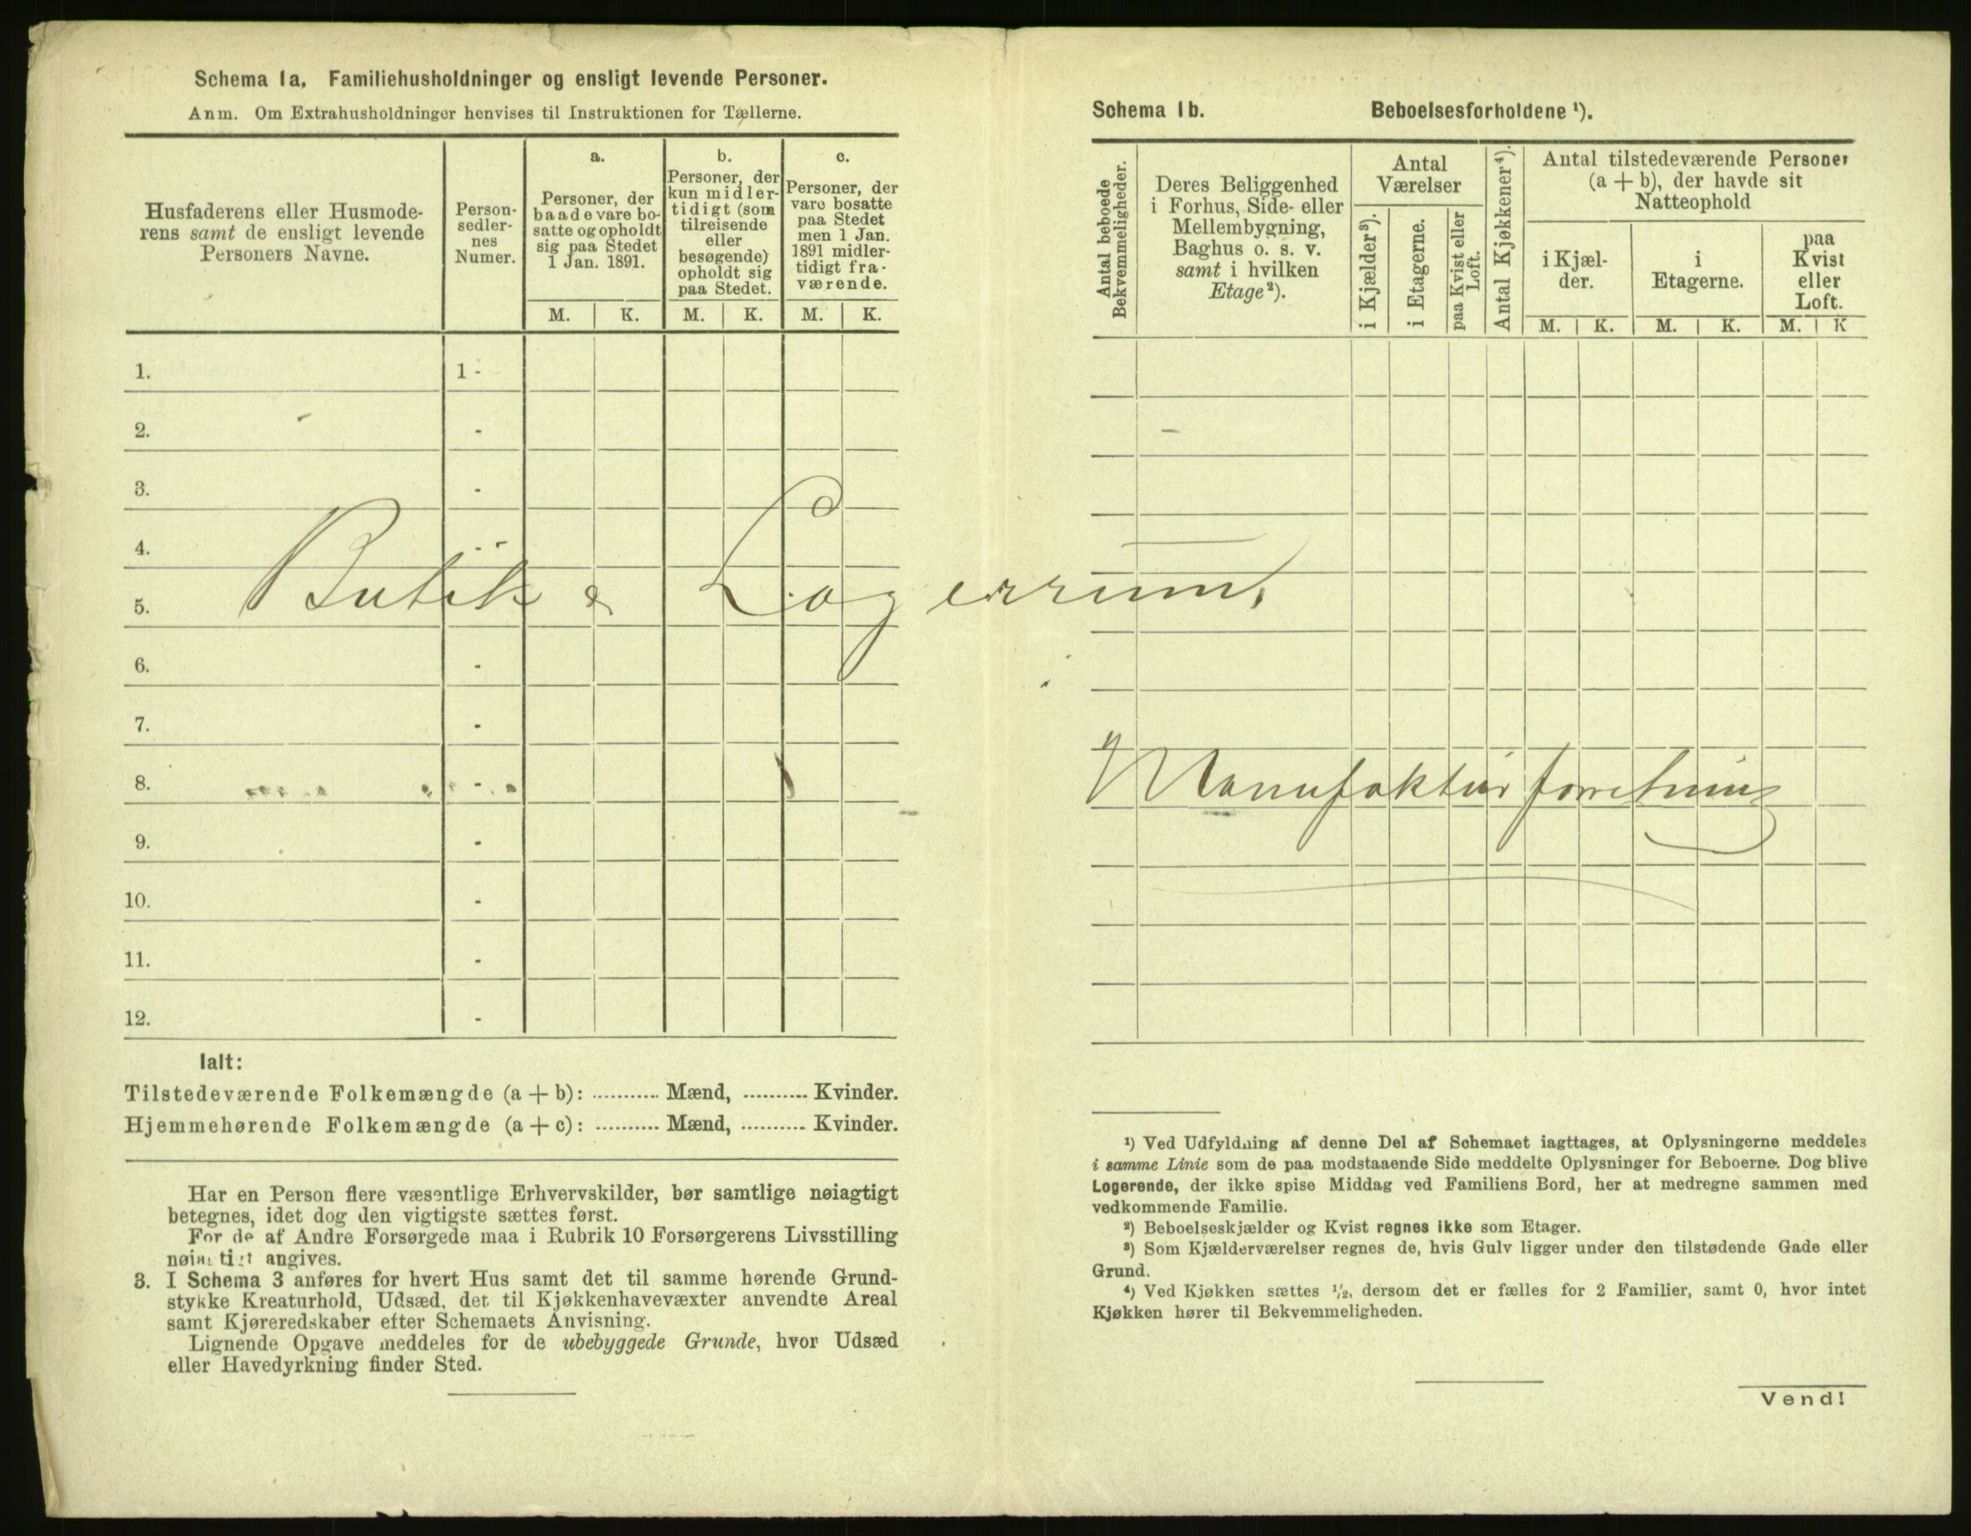 Schema 1a. Familiehusholdninger og ensligt levende Personer.
Anm. Om Extrahusholdninger henvises til Instruktionen for Tællerne.
Husfaderens eller Husmode-
rens samt de ensligt levende
Personers Navne.
Person-
sedler-
nes
Numer.
a.
Personer, der
baade vare bo-
satte og opholdt
sig paa Stedet
1 Jan. 1891.
b.
Personer, der
kun midler-
tidigt (som
tilreisende
eller
besøgende)
opholdt sig
paa Stedet.
c.
Personer, der
vare bosatte
paa Stedet
men 1 Jan.
1891 midler-
tidigt fra-
værende.
M. K. M. K. M. K.
1. 1 -
2. -
3. -
4. -
5.
Butik & Lagerrum.
6. -
7. -
8. -
9. -
10. -
11. -
12. -
Ialt:
Tilstedeværende Folkemængde (a + b): ........... Mænd, ........... Kvinder.
Hjemmehørende Folkemængde (a + c): ........... Mænd, ........... Kvinder.
Har en Person flere væsentlige Erhvervskilder, bør samtlige nøiagtigt
betegnes, idet dog den vigtigste sættes først.
For de af Andre Forsørgede maa i Rubrik 10 Forsørgerens Livsstilling
nøiagtigt angives.
3. I Schema 3 anføres for hvert Hus samt det til samme hørende Grund-
stykke Kreaturhold, Udsæd, det til Kjøkkenhavevæxter anvendte Areal
samt Kjøreredskaber efter Schemaets Anvisning.
Lignende Opgave meddeles for de ubebyggede Grunde, hvor Udsæd
eller Havedyrkning finder Sted.
Schema 1b. Beboelsesforholdene ¹).
Antal beboede
Bekvemmeligheder.
Deres Beliggenhed
i Forhus, Side- eller
Mellembygning,
Baghus o. s. v.
samt i hvilken
Etage²).
Antal
Værelser
i Kjælder³).
i Etagerne.
paa Kvist eller
Loft.
Antal Kjøkkener⁴).
Antal tilstedeværende Personer
(a + b), der havde sit
Natteophold
i Kjæl-
der.
i
Etagerne.
paa
Kvist
eller
Loft.
M. K. M. K. M. K
Manufakturforretning
¹) Ved Udfyldning af denne Del af Schemaet iagttages, at Oplysningerne meddeles
i samme Linie som de paa modstaaende Side meddelte Oplysninger for Beboerne. Dog blive
Logerende, der ikke spise Middag ved Familiens Bord, her at medregne sammen med
vedkommende Familie.
²) Beboelseskjælder og Kvist regnes ikke som Etager.
³) Som Kjælderværelser regnes de, hvis Gulv ligger under den tilstødende Gade eller
Grund.
⁴) Ved Kjøkken sættes ½, dersom det er fælles for 2 Familier, samt 0, hvor intet
Kjøkken hører til Bekvemmeligheden.
Vend!